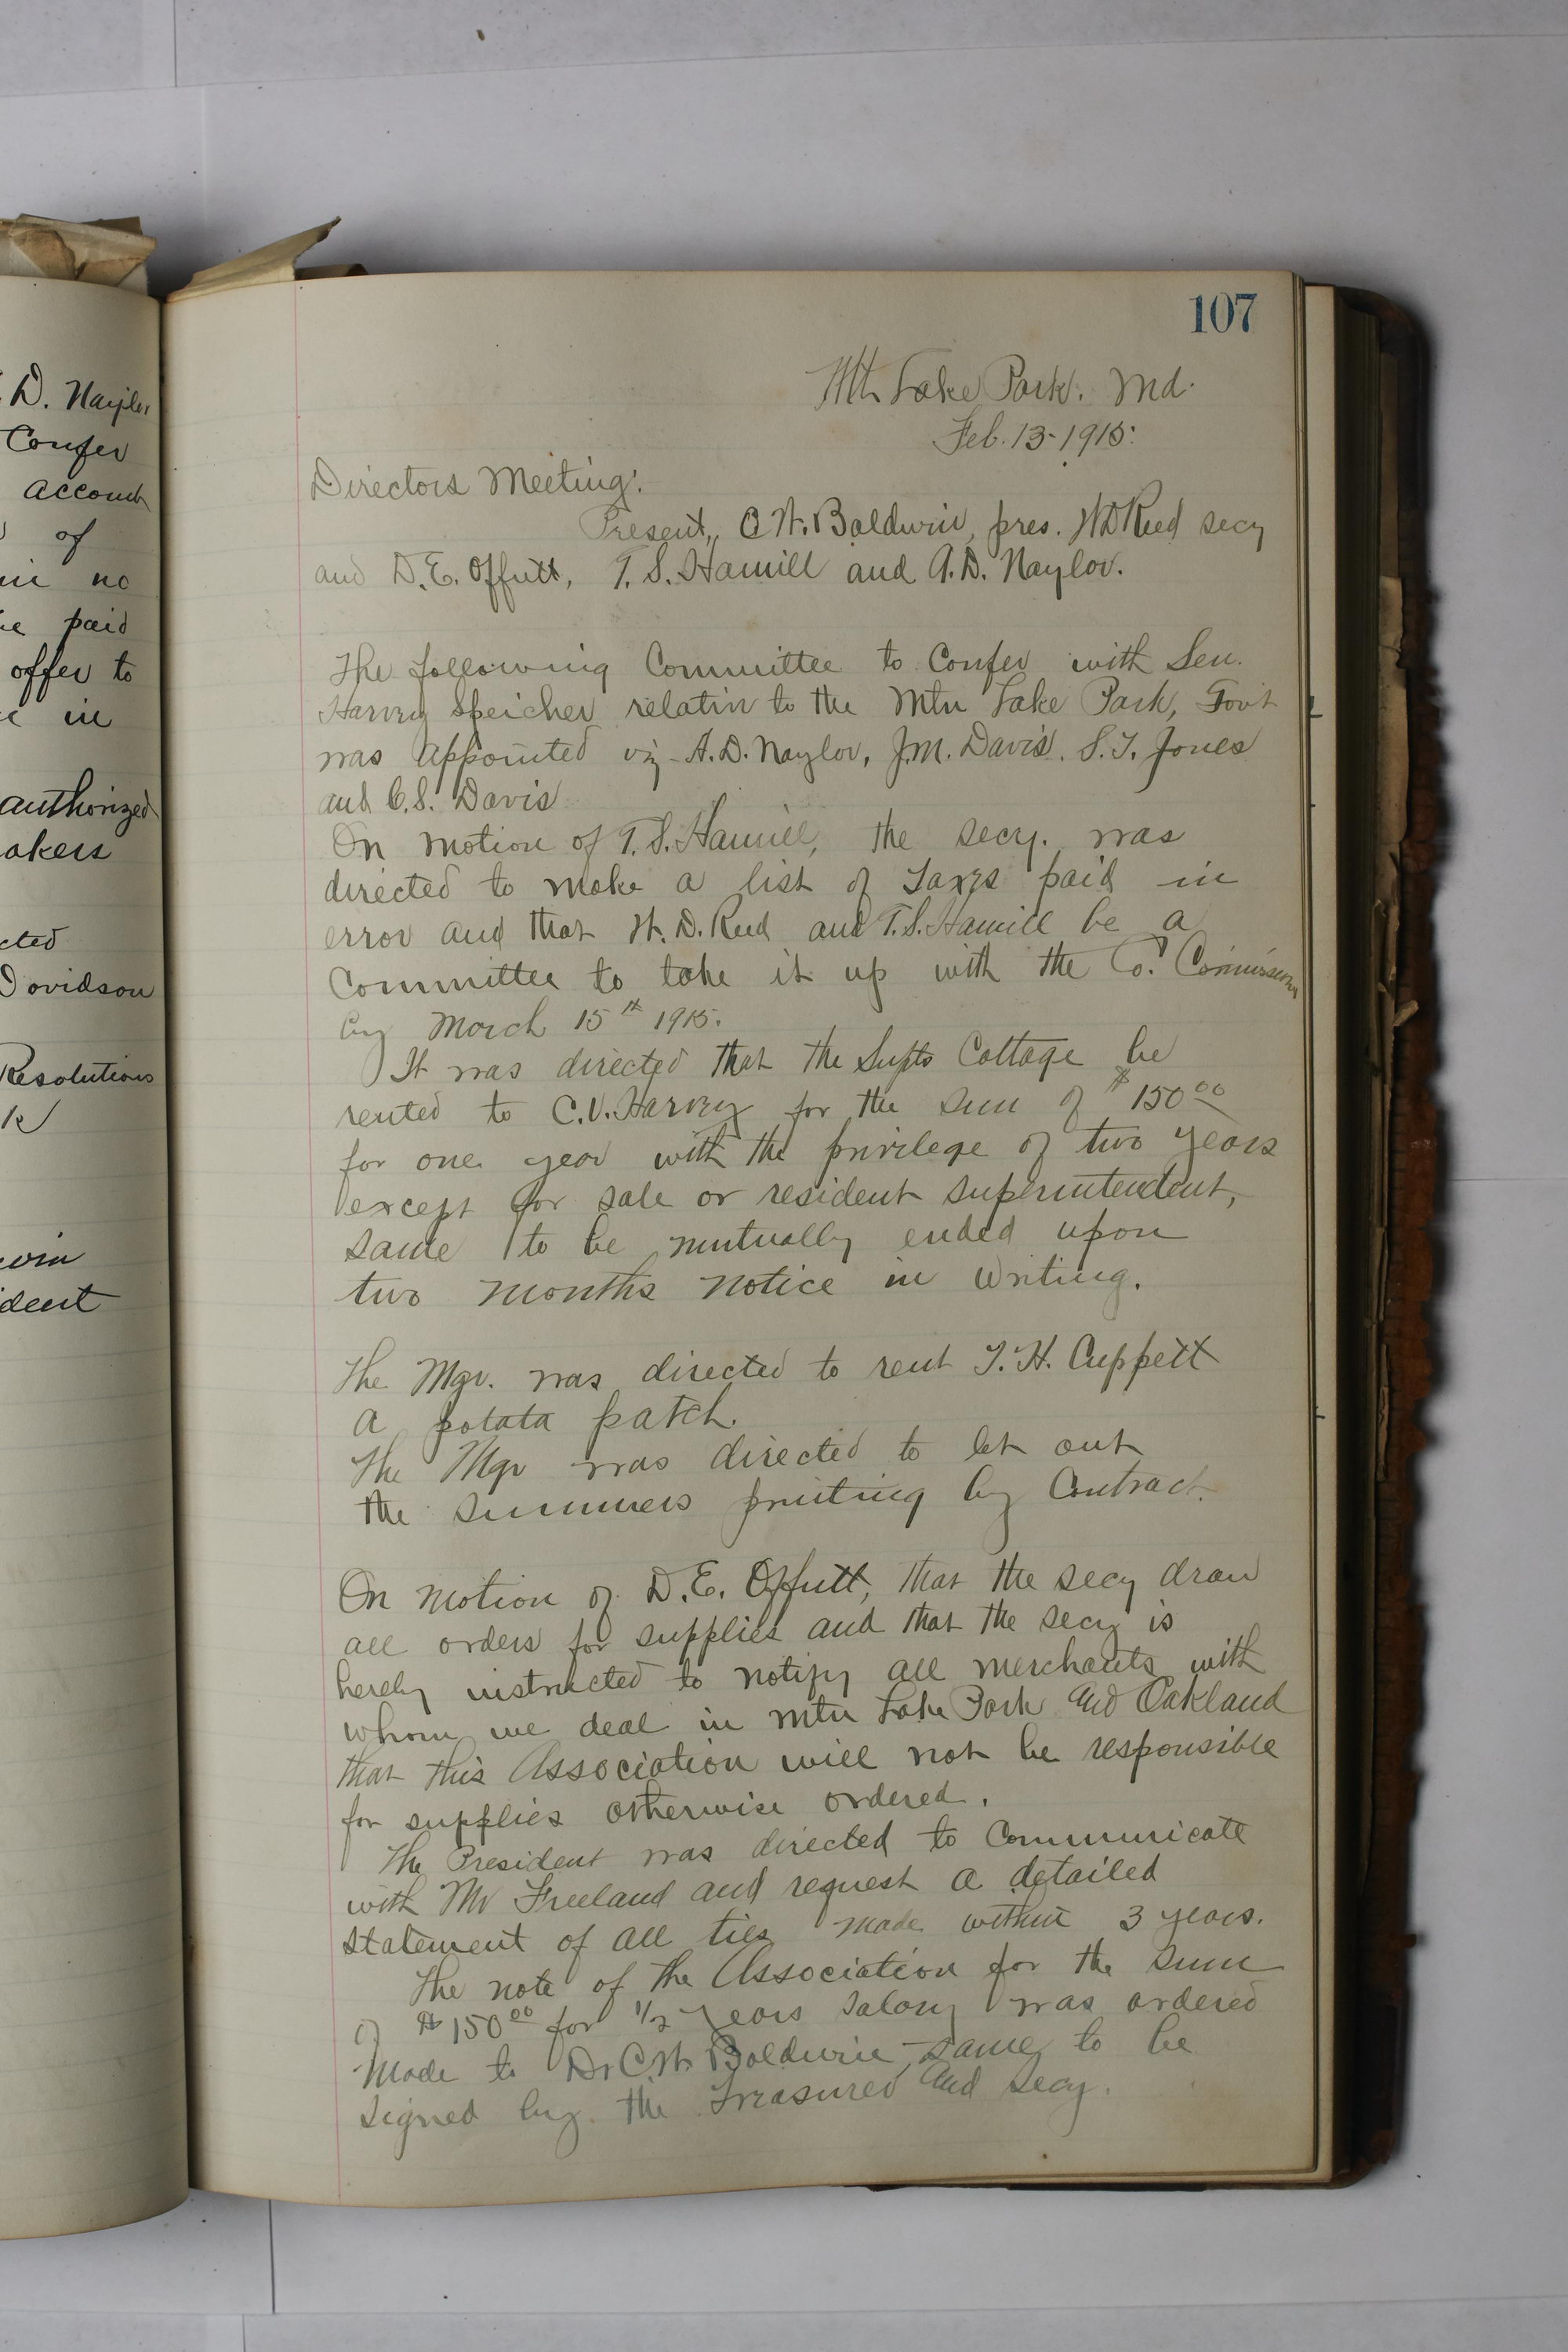 D. Naylor
Confer
account
of
no
paid
offer to
in
authorized
akers
cted
Davidson
Resolutions
dent
107
Mt. Lake Park. Md.
Feb. 13-1915.
Directors Meeting.
Present, C W. Baldwin, pres. W D Reed secy
and D. E. Offutt, T. S. Hamill and A. D. Naylor.
The following Committee to Confer with Sen.
Harvey Speicher relatin to the Mtn Lake Park, Gov't
was appointed viz - A. D. Naylor, J. M. Davis. S. T. Jones
and C. S. Davis
On motion of T. S. Hamill, the secy. was
directed to make a list of Taxes paid in
error and that W. D. Reed and T. S. Hamill be a
Committee to take it up with the Co. Commissioners
by March 15th 1915.
It was directed that the Supts Cottage be
rented to C. V. Harvey for the sum of $150 00
for one year with the privilege of two years
except for sale or resident superintendent,
same to be mutually ended upon
two months notice in writing.
The Mgr. was directed to rent T. H. Cuppett
a potata patch.
The Mgr was directed to let out
the summers printing by Contract.
On motion of D. E. Offutt, that the secy draw
all orders for supplies and that the secy is
hereby instructed to notify all merchants with
whom we deal in Mtn Lake Park and Oakland
that this Association will not be responsible
for supplies otherwise ordered.
The President was directed to Communicate
with Mr Freeland and request a detailed
statement of all ties made within 3 years.
The note of the Association for the sum
of $150 00 for 1/2 years salary was ordered
made to Dr C. W. Baldwin - same to be
signed by the Treasurer and secy.